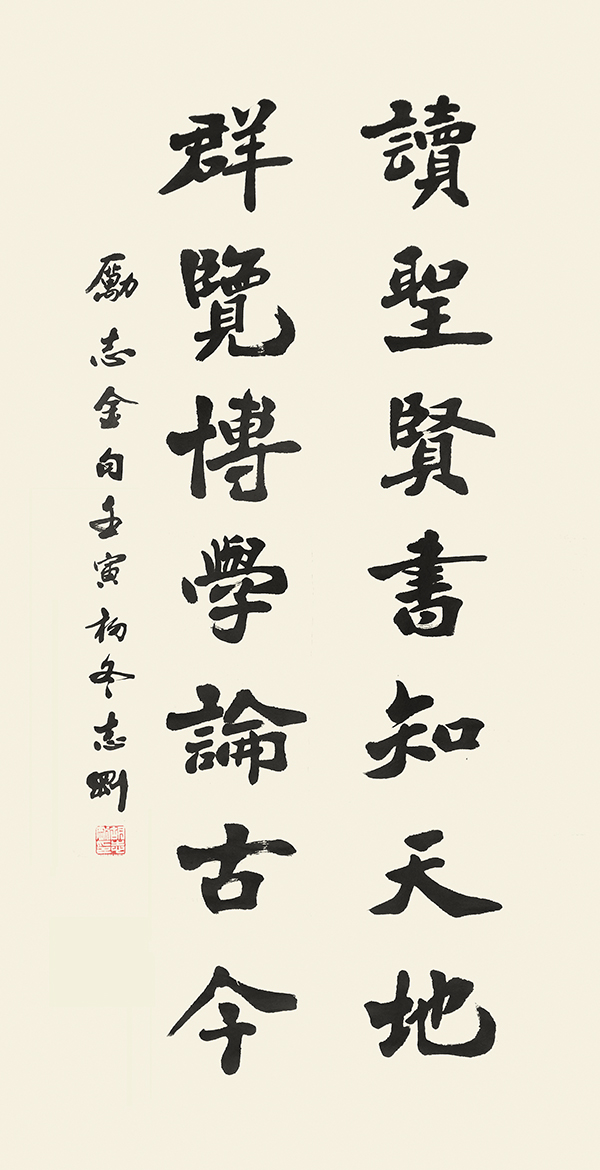 讀聖賢書知天地
群覽博學論古今
勵志金句壬寅初冬志剛